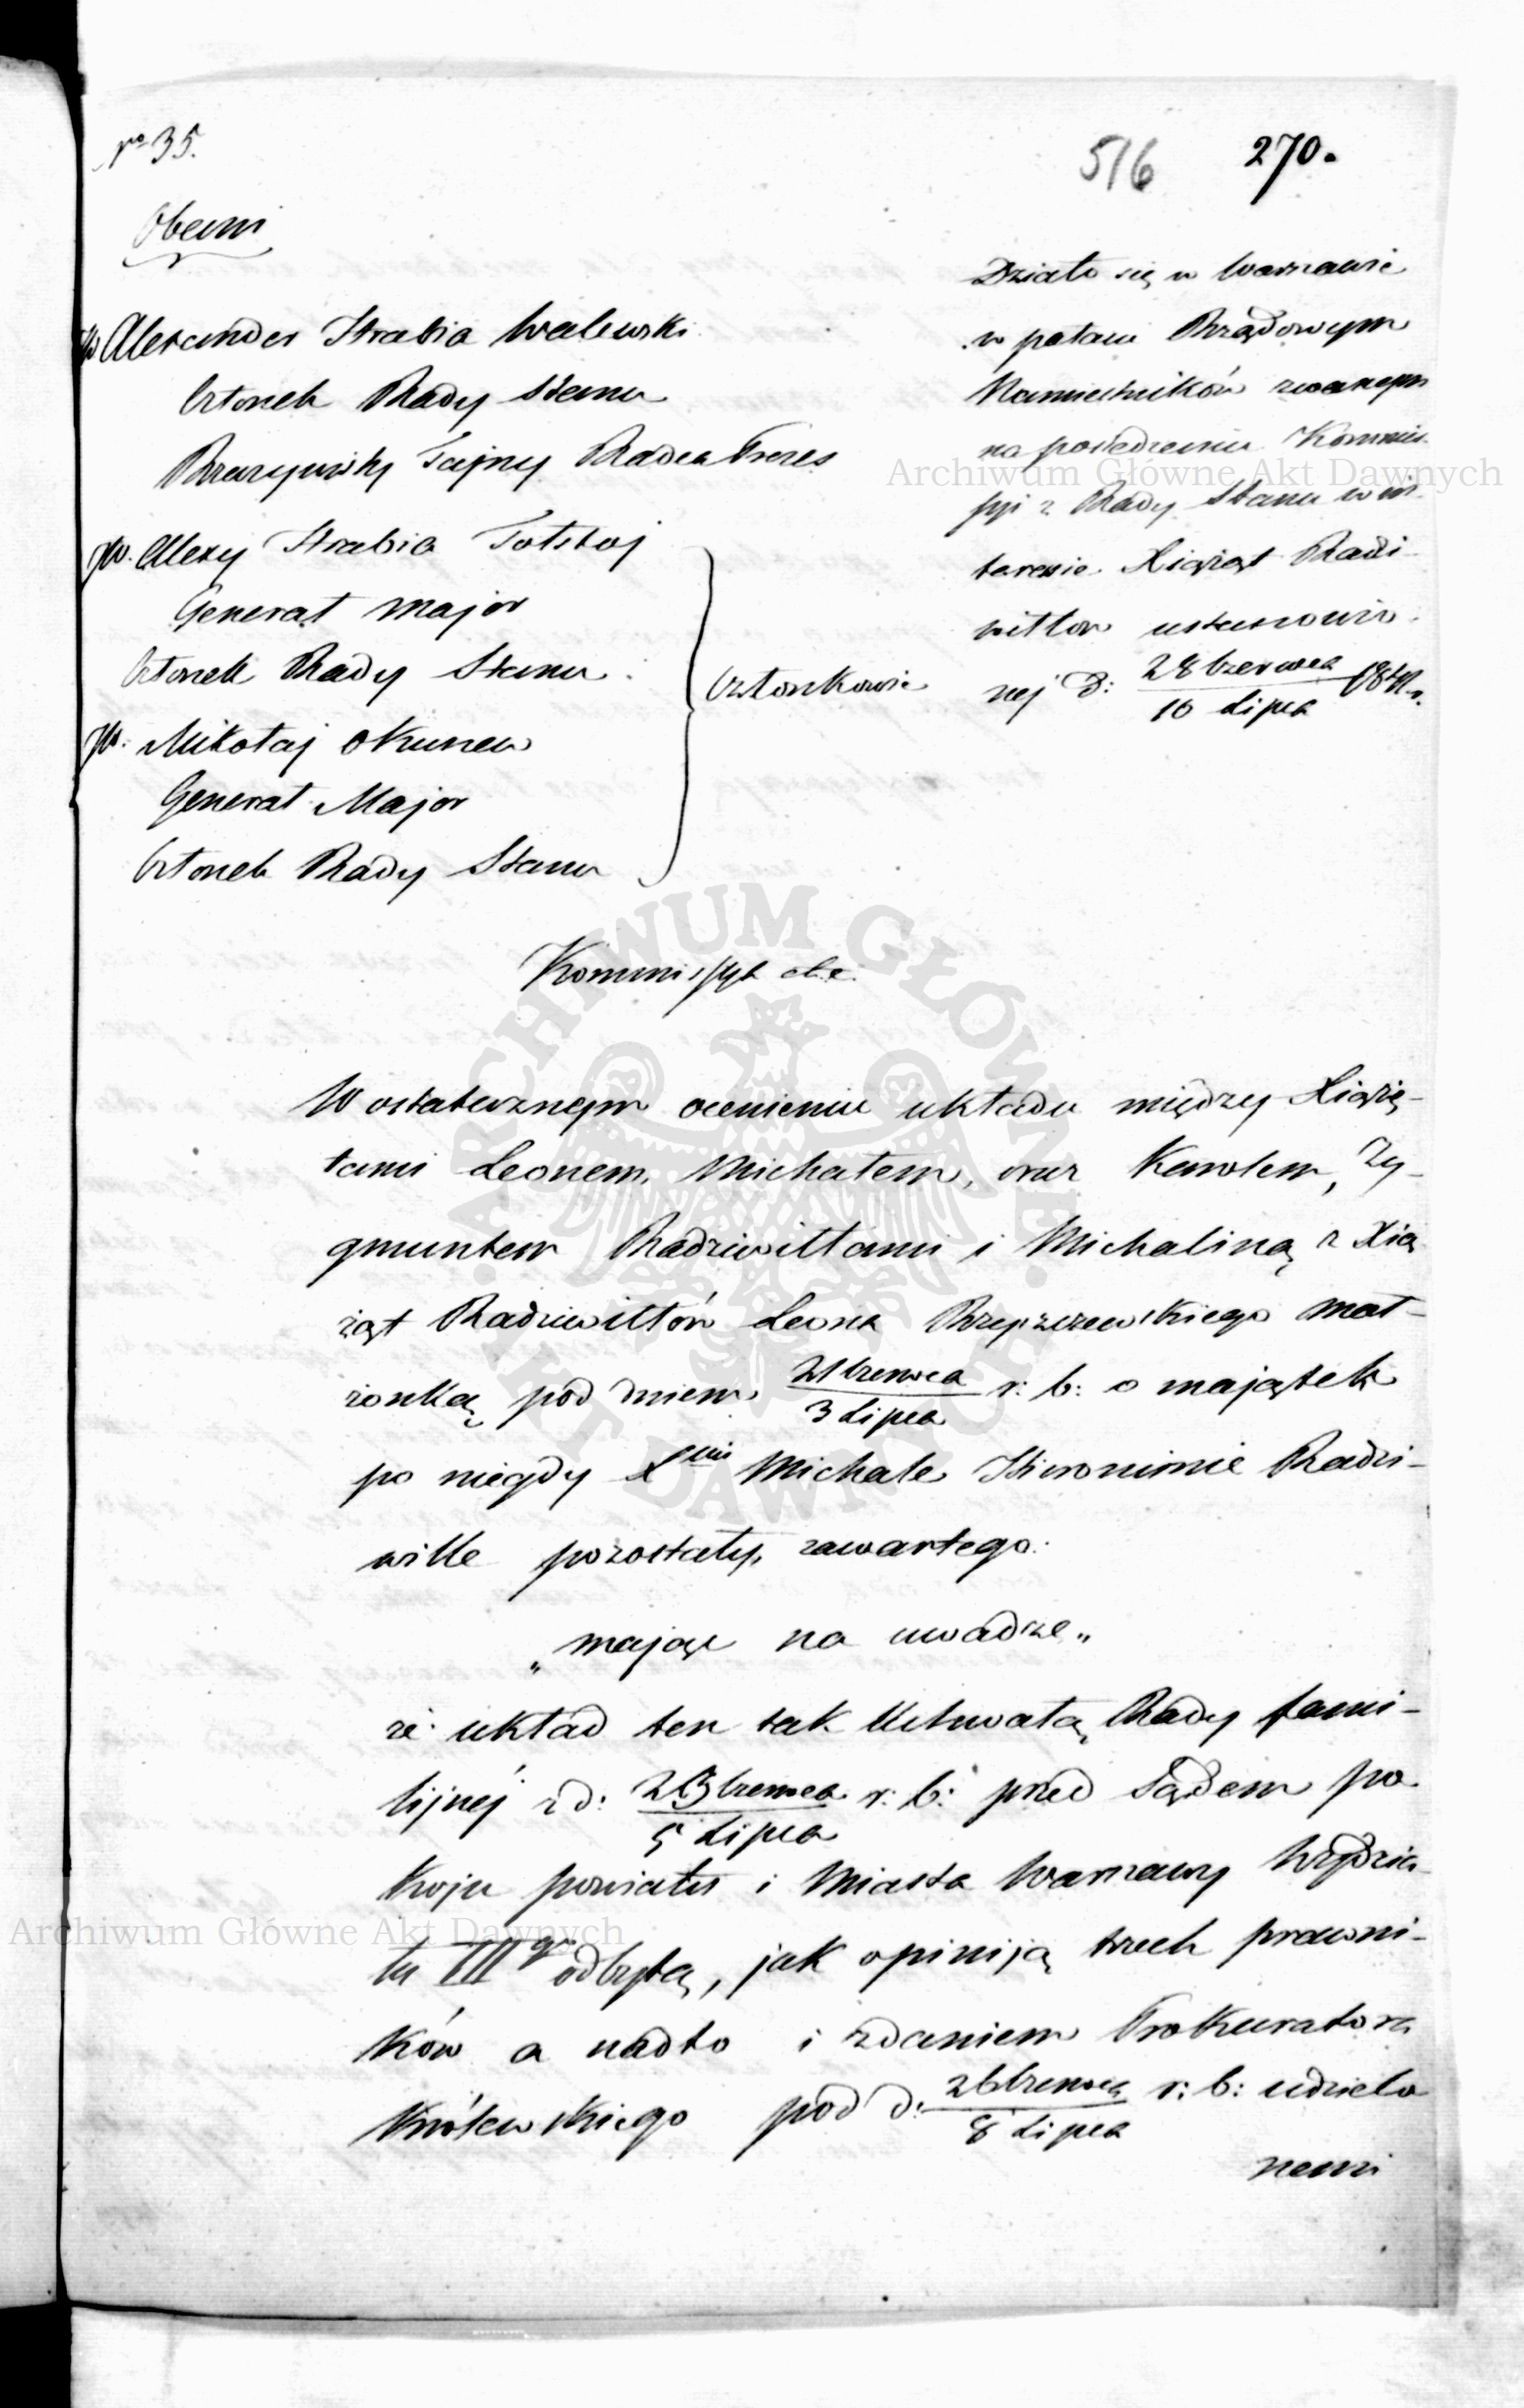 No 35.
516 270.
Obecni
JW Alexander Hrabia Walewski
Członek Rady Stanu
Rzeczywisty Tajny Radca Prezes
JW. Alexy Hrabia Tołstoj
Generał Major
Członek Rady Stanu
JW. Mikołaj Okunew
Generał Major
Członek Rady Stanu
Członkowie
Działo się w Warszawie
w pałacu Rządowym
Namiestników zwanym
na posiedzeniu Kommis-
syi z Rady Stanu w in-
teressie Xiążąt Radzi-
wiłłów ustanowio-
nej D: 28 Czerwca / 10 Lipca 184 r.
Kommissya etc.
W ostatecznym ocenieniu układu między Xiążę-
tami Leonem, Michałem, oraz Karolem, Zy-
gmuntem Radziwiłłami i Michaliną z Xią
żąt Radziwiłłów Leona Rzyszczewskiego mał-
żonką pod dniem 21 Czerwca / 3 Lipca r: b: o majątek
po niegdy Xciu Michale Hieronimie Radzi-
wille pozostały, zawartego.
„mając na uwadze„
że układ ten tak Uchwałą Rady fami-
lijnéj z d: 23 Czerwca / 5 Lipca r: b: przed Sądem po
koju powiatu i Miasta Warszawy Wydzia-
łu III go odbytą, jak opiniją trzech prawni-
ków a nadto i zdaniem Prokuratora
Królewskiego pod d: 26 Czerwca / 8 Lipca r: b: udzielo
nemi
Archiwum Główne Akt Dawnych
ARCHIWUM GŁÓWNE AKT DAWNYCH
Archiwum Główne Akt Dawnych